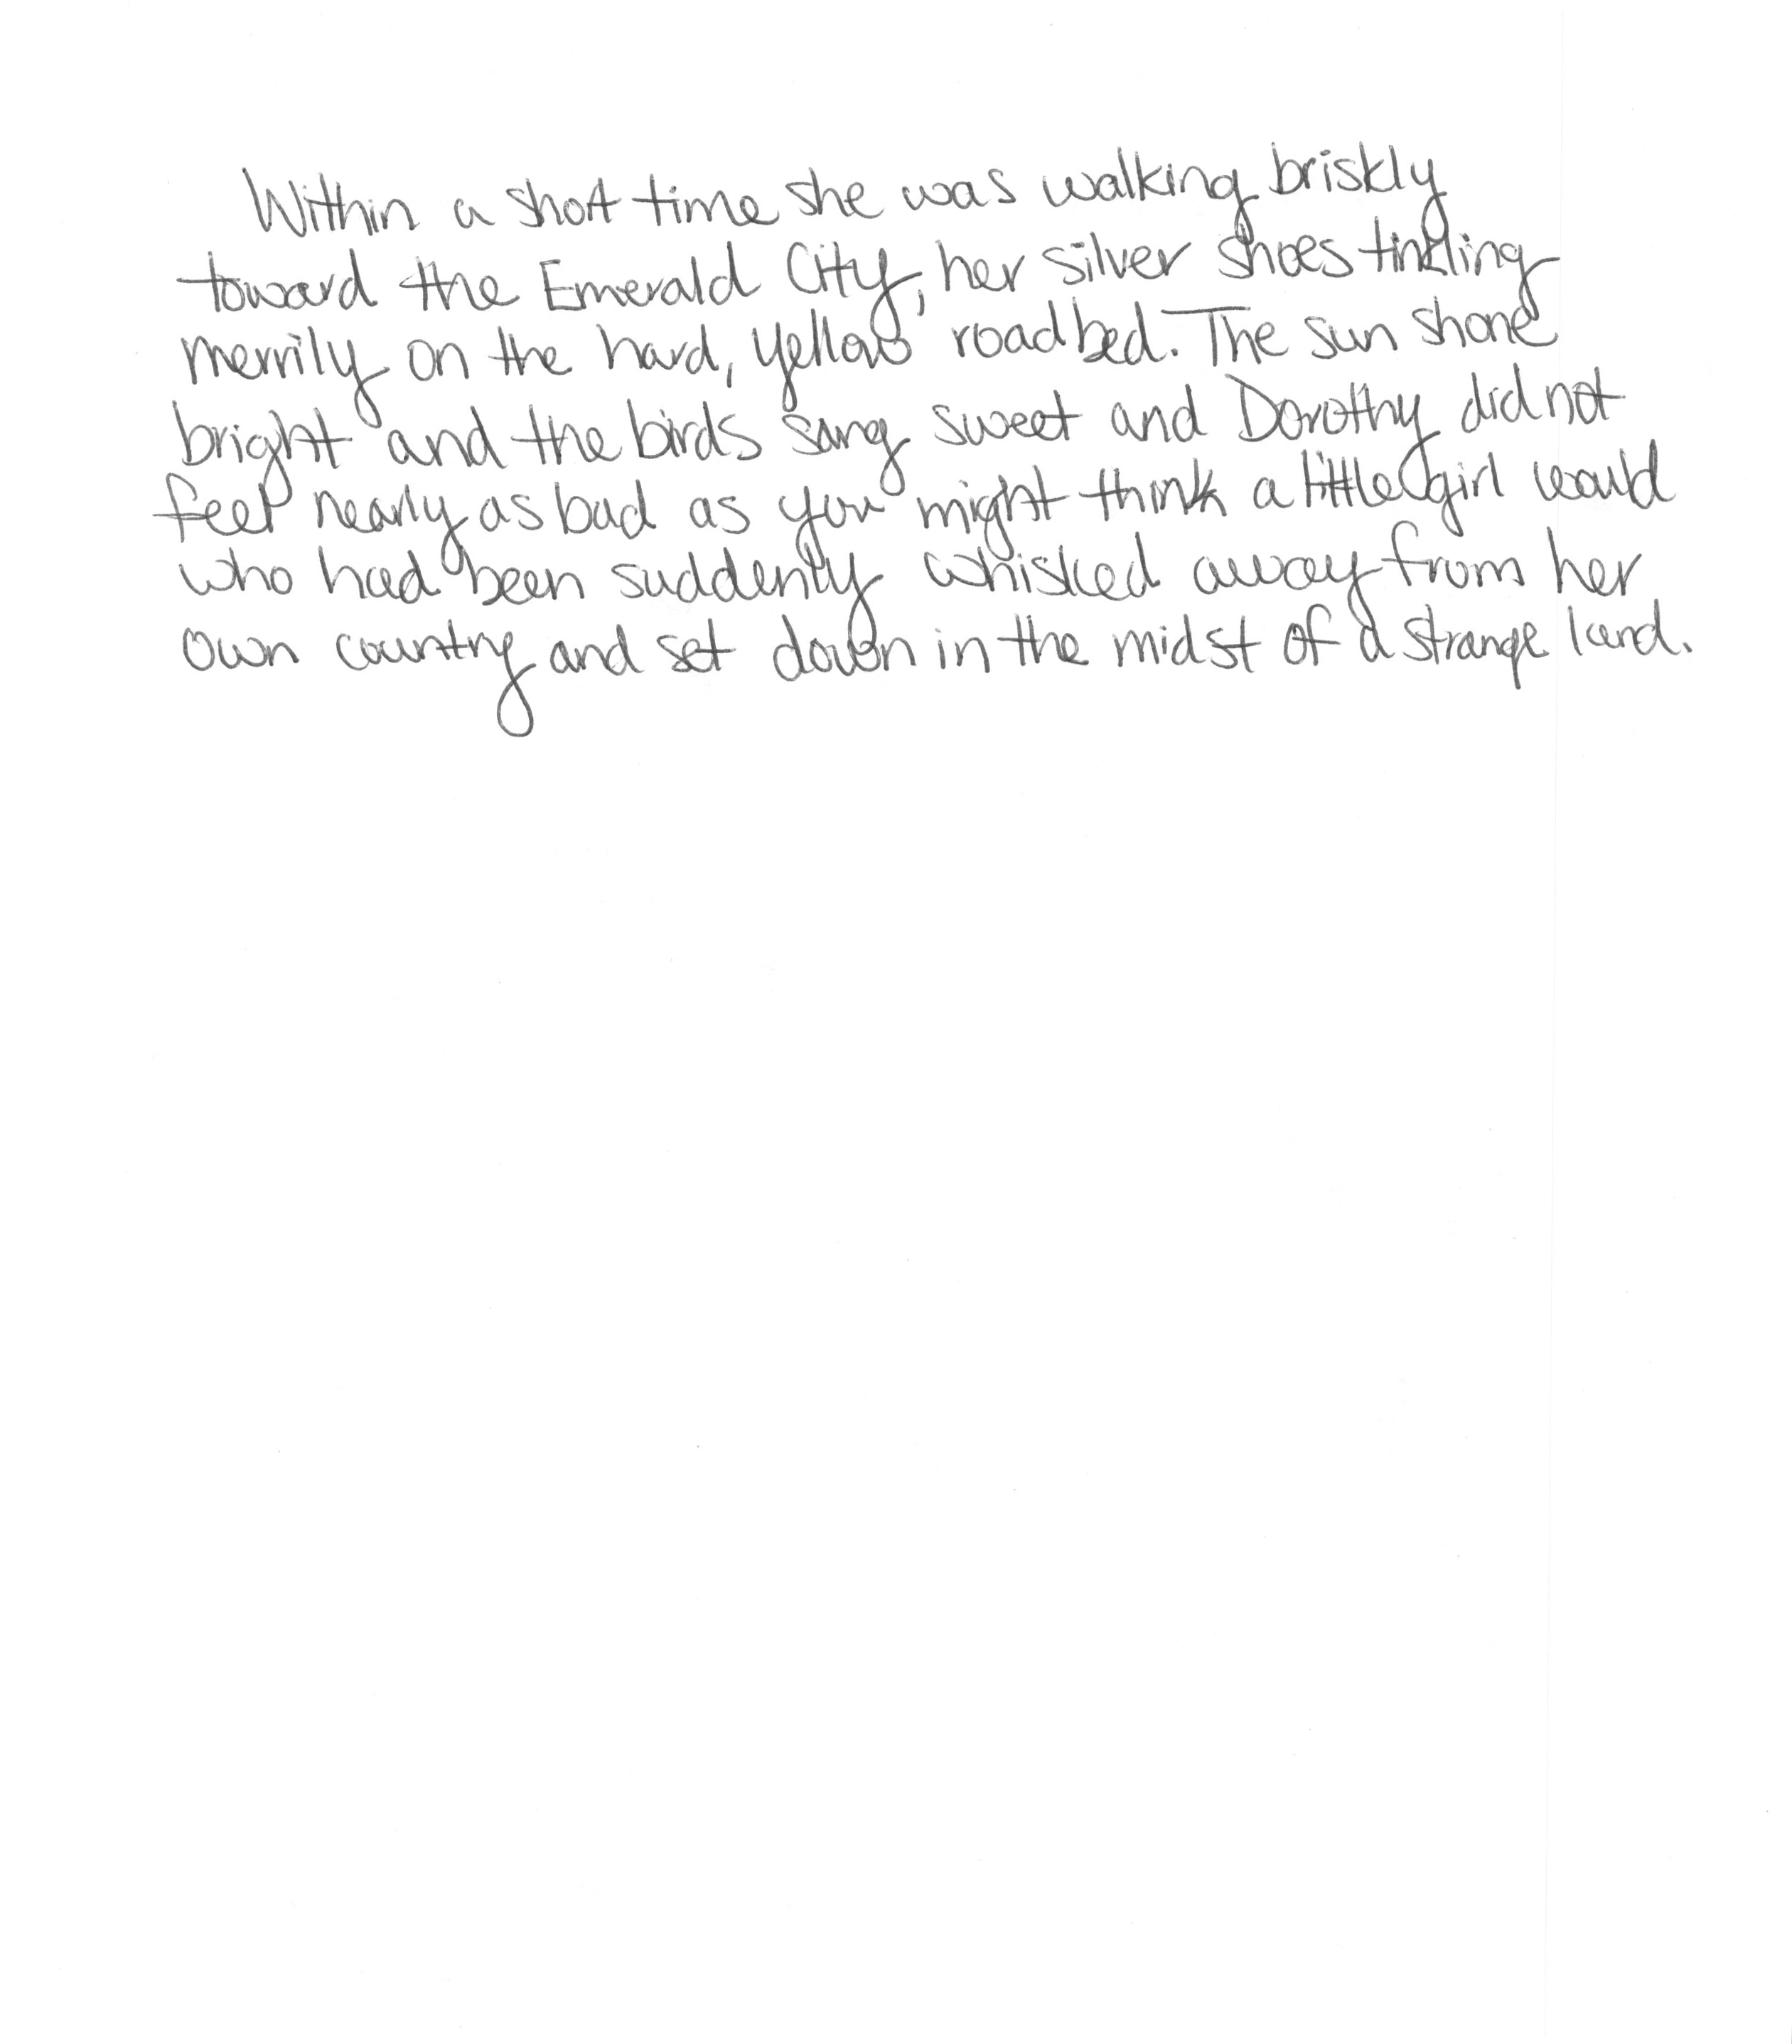 Within a short time she was walking briskly
toward the Emerald City, her silver shoes tinkling
merrily on the hard, yellow roadbed. The sun shone
bright and the birds sang sweet and Dorothy did not
feel nearly as bad as you might think a little girl would
who had been suddenly whisked away from her
own country and set down in the midst of a strange land.